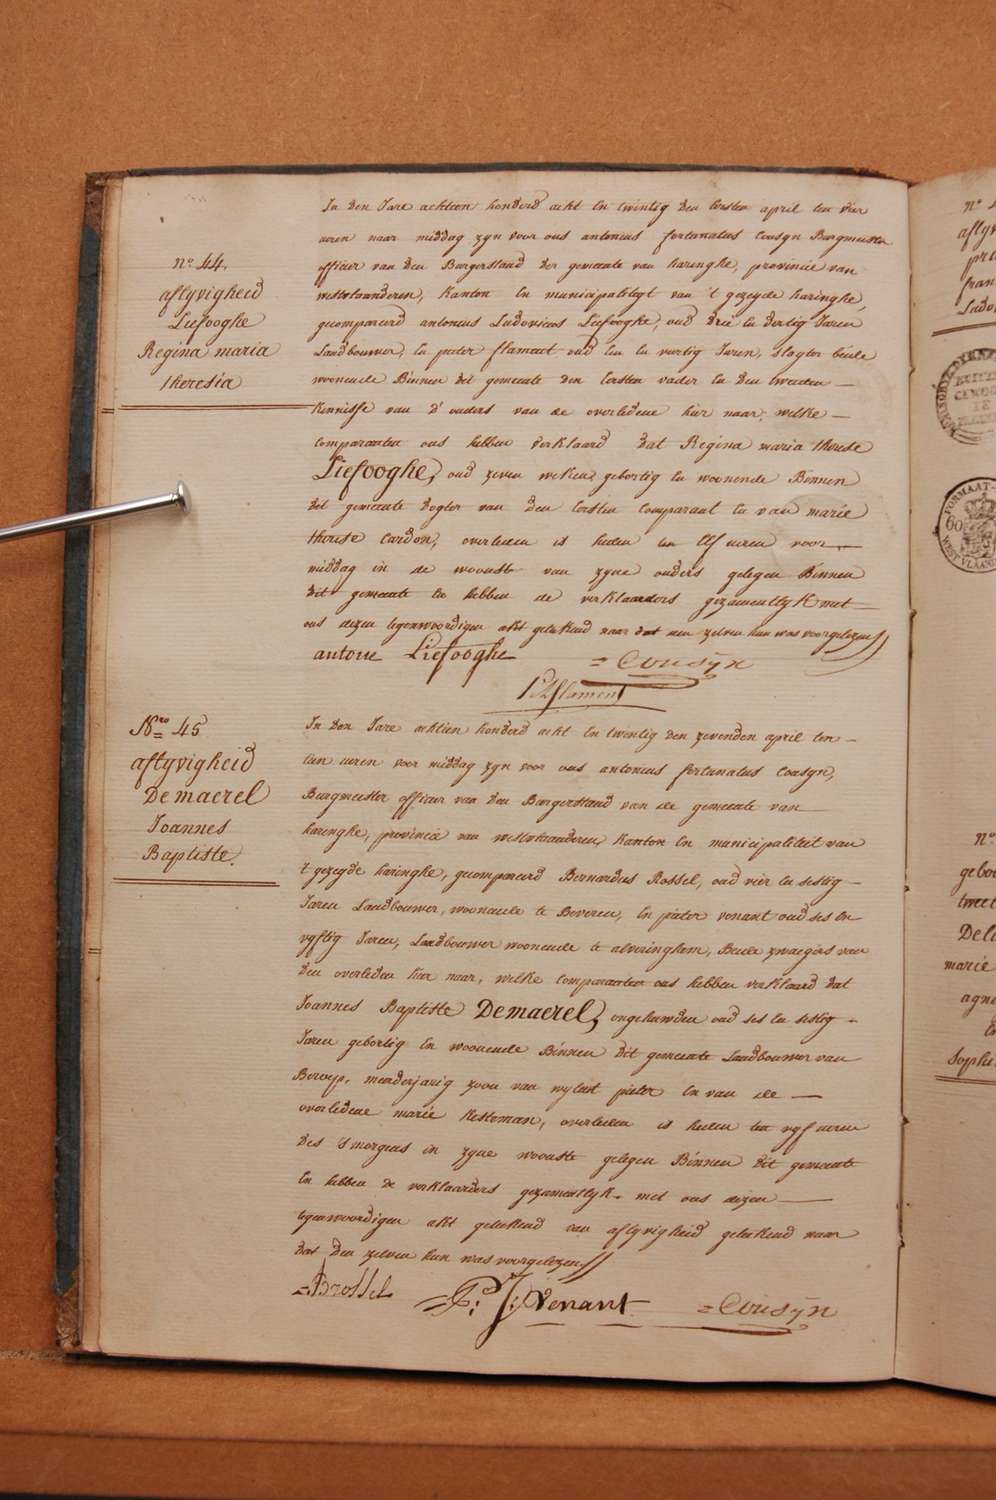 n.o 44.
aflyvigheid
Liefooghe
Regina maria
theresia
In den Jare achtien honderd acht En twintig den Eersten april ten vier
uren naar middag zyn voor ons antonius fortunatus Cousyn Burgmeester
officier van den Burgerstand der gemeente van haringhe, provincie van
westvlaanderen, Kanton En municipaliteyt van 't gezeyde haringhe,
gecompareerd antonius Ludovicus Liefooghe, oud drie En dertig Jaren
Landbouwer, En pieter flament oud Een En veertig Jaren, slagter beide
woonende Binnen dit gemeente den Eersten vader En den tweeden
Kennisse van d' ouders van de overledene hier naar, welke
comparanten ons hebben verklaard dat Regina maria therese
Liefooghe, oud zeven weken, gebortig En woonende Binnen
dit gemeente dogter van den Eersten Comparant En van marie
therese Cardon, overleden is heden ten Elf uren voor
middag in de wooste van zyne ouders gelegen Binnen
dit gemeente En hebben de verklaarders gezamentlyk met
ons dezen tegenwoordigen akt geteekend naar dat aen zelven hun was voorgelezen
antone Liefooghe
= Cousÿn
P L flament
N.ro 45
aflyvigheid
Demaerel
Joannes
Baptiste.
In den Jare achtien honderd acht En twintig den zevenden april ten
tien uren voor middag zyn voor ons antonius fortunatus Cousyn,
Burgmeester officier van den Burgerstand van de gemeente van
haringhe, provincie van westvlaanderen, Kanton En municipaliteit van
't gezeyde haringhe, gecompareerd Bernardus Rossel, oud vier En sestig
Jaren Landbouwer, woonende te Beveren, En pieter venant oud ses En
vyftig Jaren, Landbouwer woonende te alveringhem, Beide zwaegers van
den overleden hier naar, welke comparanten ons hebben verklaard dat
Joannes Baptiste Demaerel, ongehuwden oud ses En sestig
Jaren gebortig En woonende Binnen dit gemeente Landbouwer van
Beroep, meerderjarig zoon van wylent pieter En van de
overledene marie Kesteman, overleden is heden ten vyf uren
des 's morgens in zyne wooste gelegen Binnen dit gemeente
En hebben de verklaarders gezamentlyk met ons dezen
tegenwoordigen akt geteekend van aflyvigheid geteekend naar
dat den zelven hun was voorgelezen
= Brossel
P: J: Venant
= Cousÿn